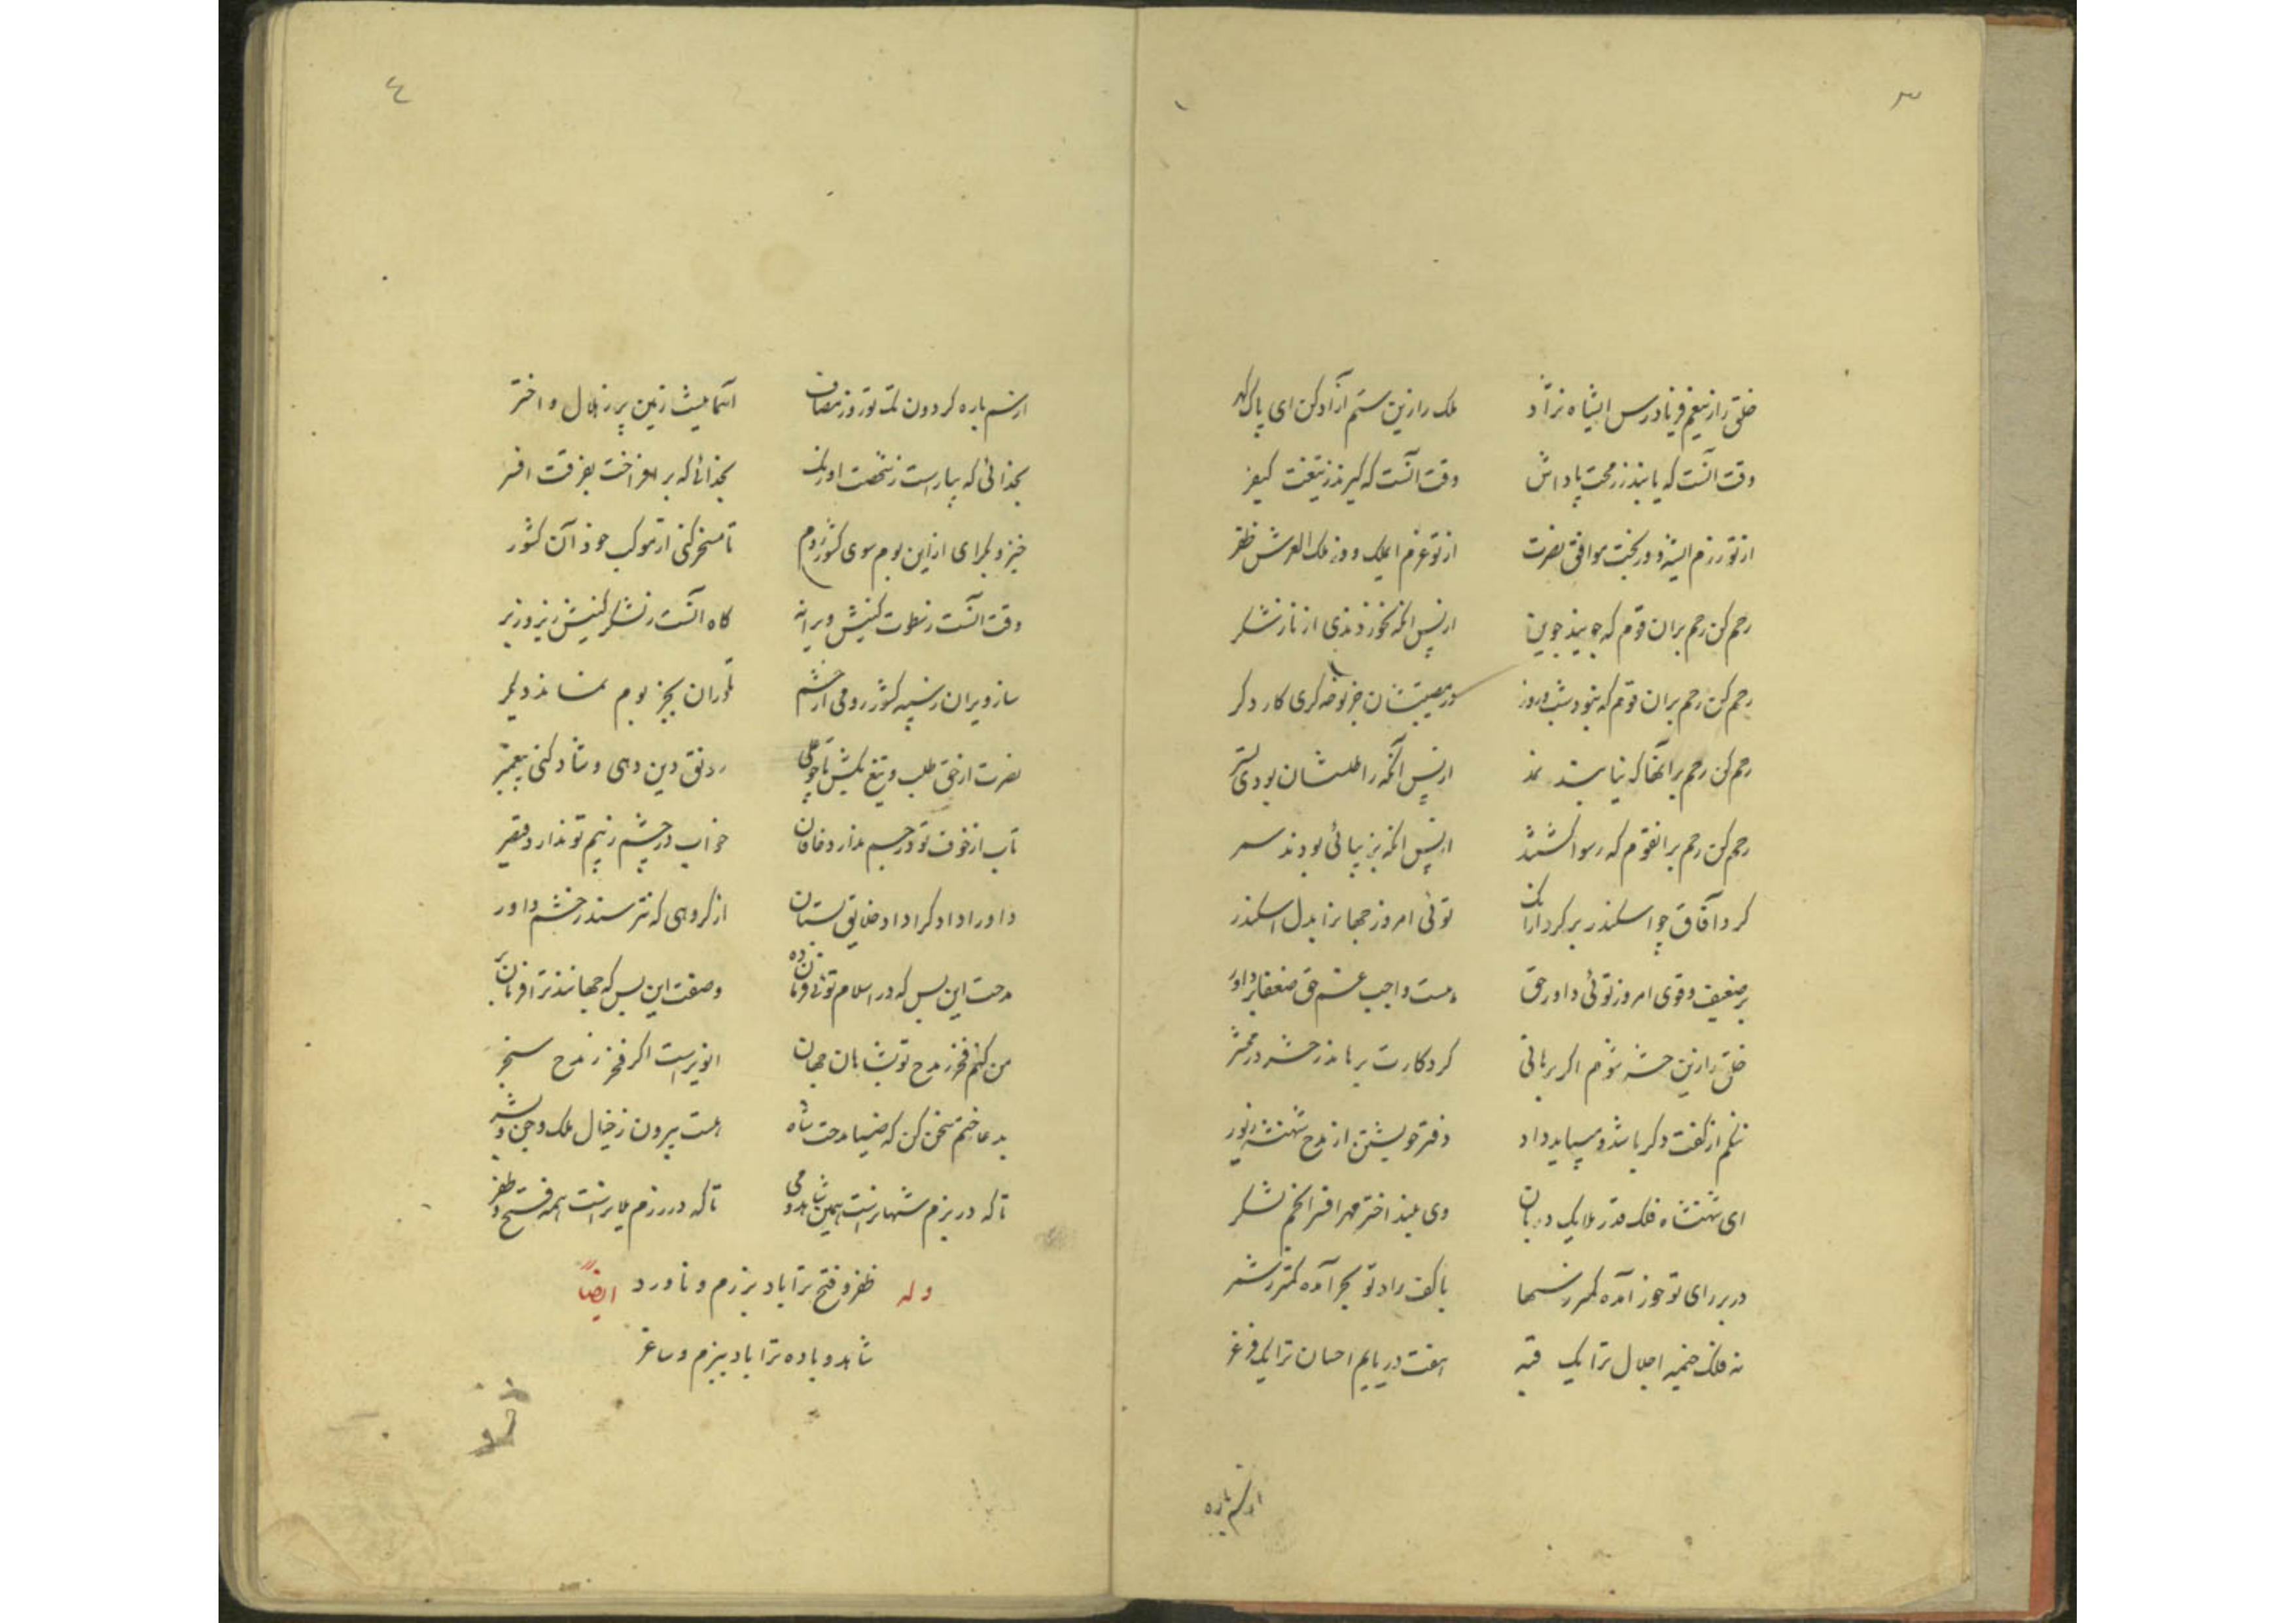 ۳
خلق را زین غم فریاد رس ای شاه نژاد ملک را زین ستم آزاد کن ای پاک گهر
وقت آنست که یابند ز رمحت پاداش وقت آنست که گیرند ز تیغت کیفر
از تو رزم ای شه و وز بخت موافق نصرت از تو عزم ای ملک و وز ملک العرش ظفر
رحم کن رحم بران قوم که جویند جوین از پس آنکه نخوردندی از ناز شکر
رحم کن رحم بران قوم که نبود شب و روز در مصیبتشان جز نوحه گری کار دگر
رحم کن رحم بر آنها که نیابند نمد از پس آنکه ز اطلسشان بودی بستر
رحم کن رحم بر انقوم که رسوا گشتند از پس آنکه بزیبائی بودند سمر
گرد آفاق چو اسکندر برگرد ازانک توئی امروز جهانرا بدل اسکندر
بر ضعیف و قوی امروز توئی داور حق هست واجب غم حق ضعفا بر داور
خلق را زین حشر شوم اگر برهانی کردگارت برهاند ز حشر در محشر
نیلم از گفت دگر باشد و سپیاید داد دفتر خویشتن از مدح شهنشه زیور
ای شهنشاه فلک قدر ملایک دربان وی بلند اختر مهر افسر انجم لشکر
در بر رای تو خور آمده کمتر ز سها با کف راد تو بحر آمده کمتر ز شمر
نه فلک خیمه اجلال ترا یک قبه هفت دریا یم احسان ترا یک فرغر
از سم باره
٤
از سم باره گردون تک تو روز مصاف آسمانیست زمین پر ز هلال و اختر
بخدائی که بیاراست ز تختت اورنگ بخدائی که بر افراخت بفرقت افسر
خیز و بگرای ازین بوم سوی کشور روم تا مسخر کنی از موکب خود آن کشور
وقت آنست ز سطوت کنیش ویرانه گاه آنست ز لشکر کنیش زیر و زبر
ساز ویران ز سپه کشور رومی از خشم تا دران بجز بوم نماند دیگر
نصرت از حق طلب و تیغ بکش تا چو علی رونق دین دهی و شاد کنی پیغمبر
تاب از خوف تو در جسم ندارد خاقان خواب در چشم ز بیم تو ندارد قیصر
داورا دادگرا داد خلایق بستان از گروهی که نترسند ز خشم داور
مدحت این بس که در اسلام توئی فرمان ده وصفت این بس که جهانند ترا فرمان بر
من کنم فخر ز مدح تو بشاهان جهان انوریراست اگر فخر ز مدح سنجر
بدعا ختم سخن کن که ضیا مدحت شاه هست بیرون ز خیال ملک و جن و بشر
تا که در بزم شهانراست همین شاهد و می تا که در رزم یلانراست همه فتح و ظفر
وله ظفر و فتح ترا باد برزم و ناورد ایضاً
شاهد و باده ترا باد ببزم و ساغر